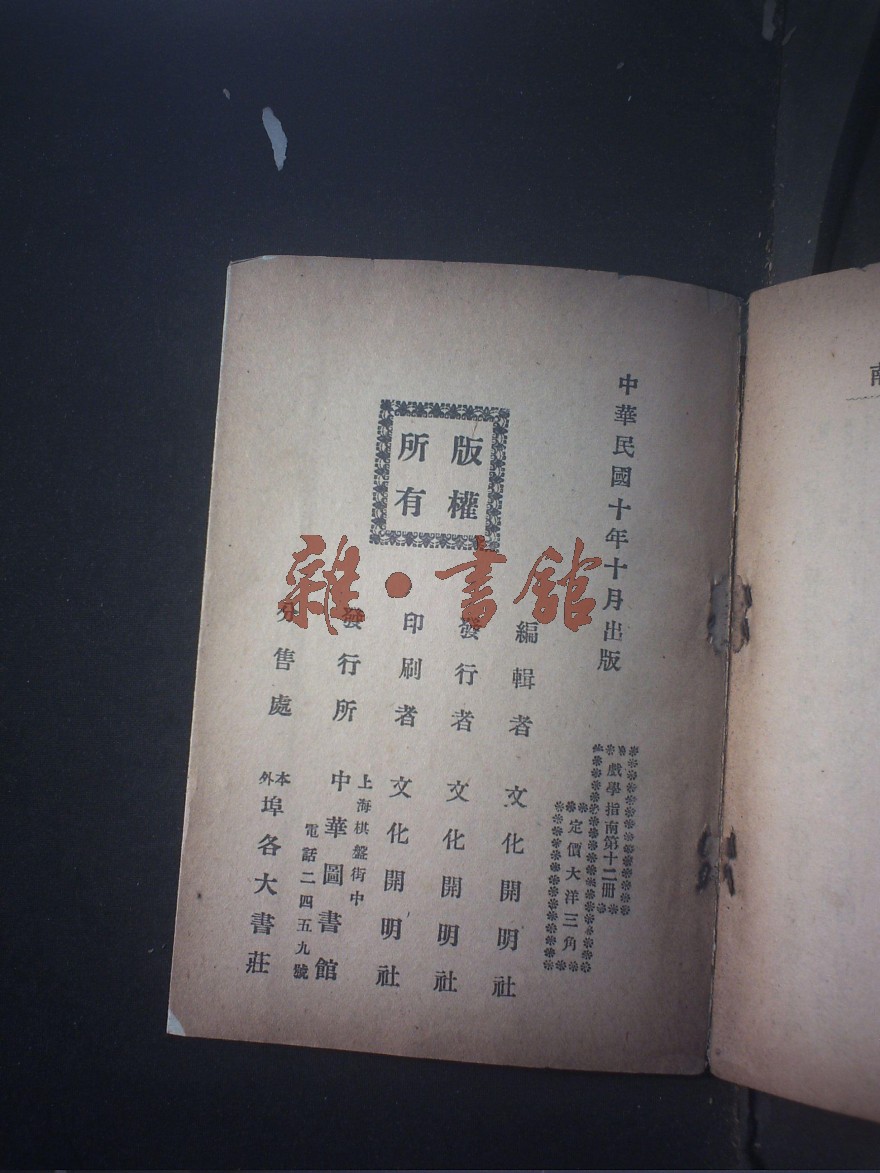 中華民國十年十月出版
戲學指南第十二冊
定價大洋三角
版權
所有
編輯者 文化開明社
發行者 文化開明社
印刷者 文化開明社
發行所 中華圖書館
上海棋盤街中
電話二四五九號
分售處 本外埠各大書莊
雜·書館